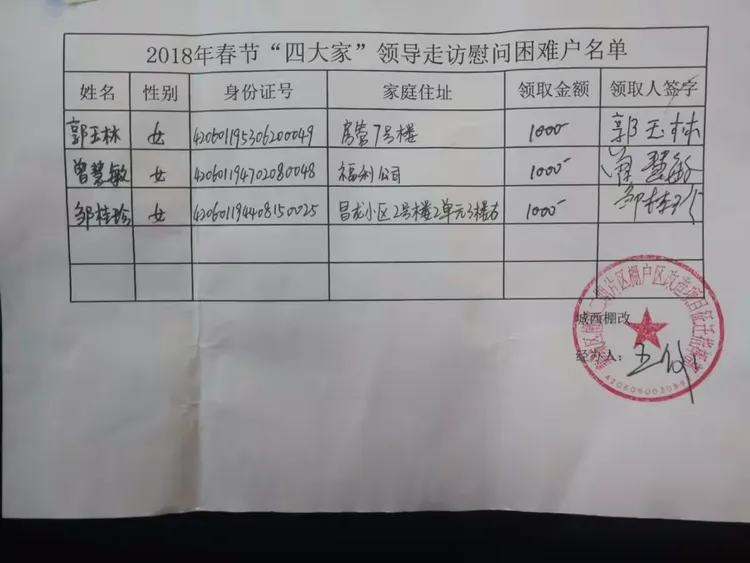 2018年春节“四大家”领导走访慰问困难户名单
姓名 性别 身份证号 家庭住址 领取金额 领取人签字
郭玉林 女 420601195306200049 房管7号楼 1000 郭玉林
曾慧敏 女 420601194702080048 福利公司 1000 曾慧敏
邹桂珍 女 420601194408150025 昌龙小区2号楼2单元3楼右 1000 邹桂珍
城西棚改
经办人：
片区棚户区改造项目征迁指挥部